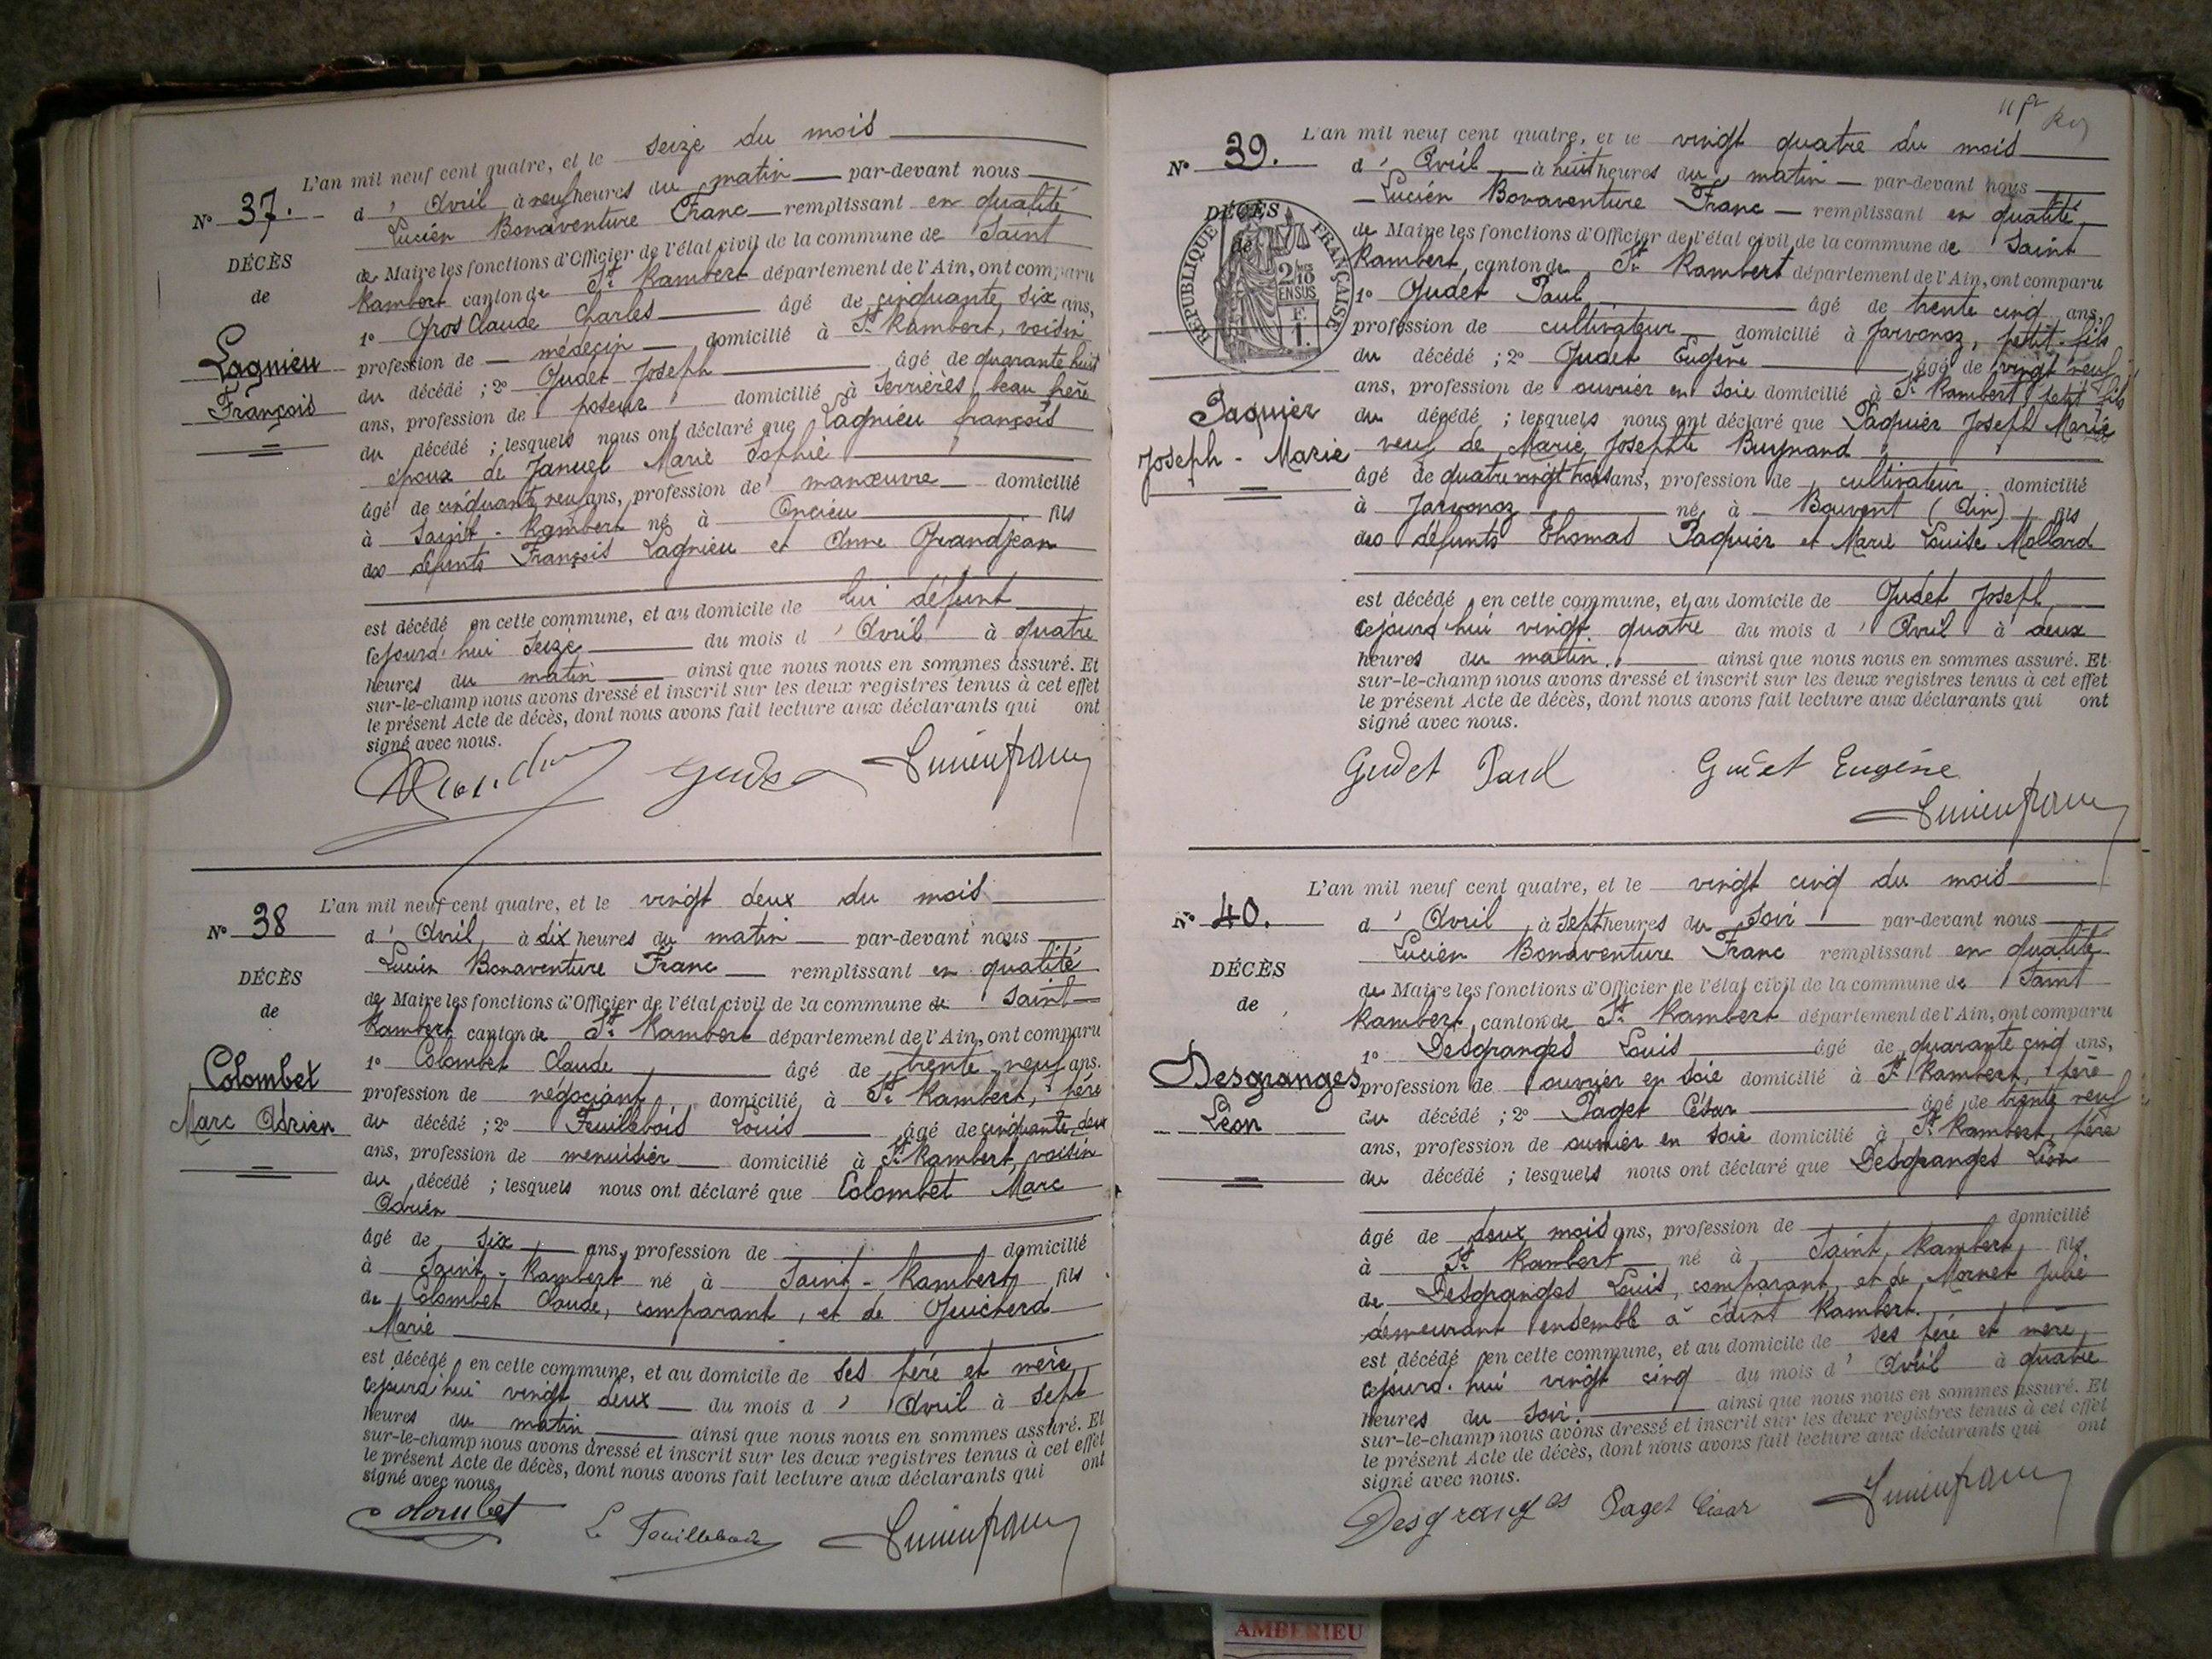 L'an mil neuf cent quatre, et le seize du mois
N° 37. d'Avril à neuf heures du matin par-devant nous
Lucien Bonaventure Franc remplissant en qualité
DÉCÈS
de Maire les fonctions d'Officier de l'état civil de la commune de Saint
de
Rambert canton de St Rambert département de l'Ain, ont comparu
1° Gros Claude Charles âgé de cinquante six ans,
Lagnieu
profession de médecin domicilié à St Rambert, voisin
du décédé ; 2° Gudet Joseph âgé de quarante huit
François
ans, profession de poseur domicilié à Serrières, beau frère
du décédé ; lesquels nous ont déclaré que Lagnieu françois
époux de Januel Marie Sophie
âgé de cinquante neuf ans, profession de manœuvre domicilié
à Saint-Rambert né à Oncieu fils
des défunts François Lagnieu et Anne Grandjean
est décédé en cette commune, et au domicile de lui défunt
cejourd'hui seize du mois d'Avril à quatre
heures du matin ainsi que nous nous en sommes assuré. Et
sur-le-champ nous avons dressé et inscrit sur les deux registres tenus à cet effet
le présent Acte de décès, dont nous avons fait lecture aux déclarants qui ont
signé avec nous.
Gudet Lucien franc
L'an mil neuf cent quatre, et le vingt deux du mois
N° 38 d'Avril à dix heures du matin par-devant nous
Lucien Bonaventure Franc remplissant en qualité
DÉCÈS
de Maire les fonctions d'Officier de l'état civil de la commune de Saint
de
Rambert canton de St Rambert département de l'Ain, ont comparu
1° Colombet Claude âgé de trente neuf ans.
Colombet
profession de négociant domicilié à St Rambert, père
Marc Adrien
du décédé ; 2° Feuillebois Louis âgé de cinquante deux
ans, profession de menuisier domicilié à St Rambert, voisin
du décédé ; lesquels nous ont déclaré que Colombet Marc
Adrien
âgé de six ans, profession de domicilié
à Saint-Rambert né à Saint-Rambert fils
de Colombet Claude, comparant, et de Guicherd
Marie
est décédé en cette commune, et au domicile de ses père et mère
cejourd'hui vingt deux du mois d'Avril à sept
heures du matin ainsi que nous nous en sommes assuré. Et
sur-le-champ nous avons dressé et inscrit sur les deux registres tenus à cet effet
le présent Acte de décès, dont nous avons fait lecture aux déclarants qui ont
signé avec nous.
Colombet L Feuillebois Lucien franc
L'an mil neuf cent quatre, et le vingt quatre du mois
N° 39. d'Avril à huit heures du matin par-devant nous
Lucien Bonaventure Franc remplissant en qualité
DÉCÈS
de
RÉPUBLIQUE FRANÇAISE
2/10 EN SUS
F.
1.
de Maire les fonctions d'Officier de l'état civil de la commune de Saint
Rambert, canton de St Rambert département de l'Ain, ont comparu
1° Gudet Paul âgé de trente cinq ans,
profession de cultivateur domicilié à Javonoz, petit-fils
du décédé ; 2° Gudet Eugène âgé de vingt neuf
ans, profession de ouvrier en soie domicilié à St Rambert petit fils
Paquier
du décédé ; lesquels nous ont déclaré que Paquier Joseph Marie
Joseph-Marie
veuf de Marie Josephte Buynand
âgé de quatre vingt trois ans, profession de cultivateur domicilié
à Javonoz né à Bouvent (Ain) fils
des défunts Thomas Paquier et Marie Louise Mollard
est décédé en cette commune, et au domicile de Gudet Joseph
cejourd'hui vingt quatre du mois d'Avril à deux
heures du matin. ainsi que nous nous en sommes assuré. Et
sur-le-champ nous avons dressé et inscrit sur les deux registres tenus à cet effet
le présent Acte de décès, dont nous avons fait lecture aux déclarants qui ont
signé avec nous.
Gudet Paul Gudet Eugène
Lucien franc
L'an mil neuf cent quatre, et le vingt cinq du mois
N° 40. d'Avril à sept heures du soir par-devant nous
Lucien Bonaventure Franc remplissant en qualité
DÉCÈS
de Maire les fonctions d'Officier de l'état civil de la commune de Saint
de
Rambert, canton de St Rambert département de l'Ain, ont comparu
1° Desgranges Louis âgé de quarante cinq ans,
Desgranges
profession de ouvrier en soie domicilié à St Rambert, père
Léon
du décédé ; 2° Paget César âgé de trente neuf
ans, profession de ouvrier en soie domicilié à St Rambert, père
du décédé ; lesquels nous ont déclaré que Desgranges Léon
âgé de deux mois ans, profession de domicilié
à St Rambert né à Saint Rambert, fils
de Desgranges Louis, comparant, et de Mornet Julie
demeurant ensemble à Saint Rambert.
est décédé en cette commune, et au domicile de ses père et mère,
cejourd'hui vingt cinq du mois d'Avril à quatre
heures du soir. ainsi que nous nous en sommes assuré. Et
sur-le-champ nous avons dressé et inscrit sur les deux registres tenus à cet effet
le présent Acte de décès, dont nous avons fait lecture aux déclarants qui ont
signé avec nous.
Desgranges Paget César Lucien franc
AMBERIEU